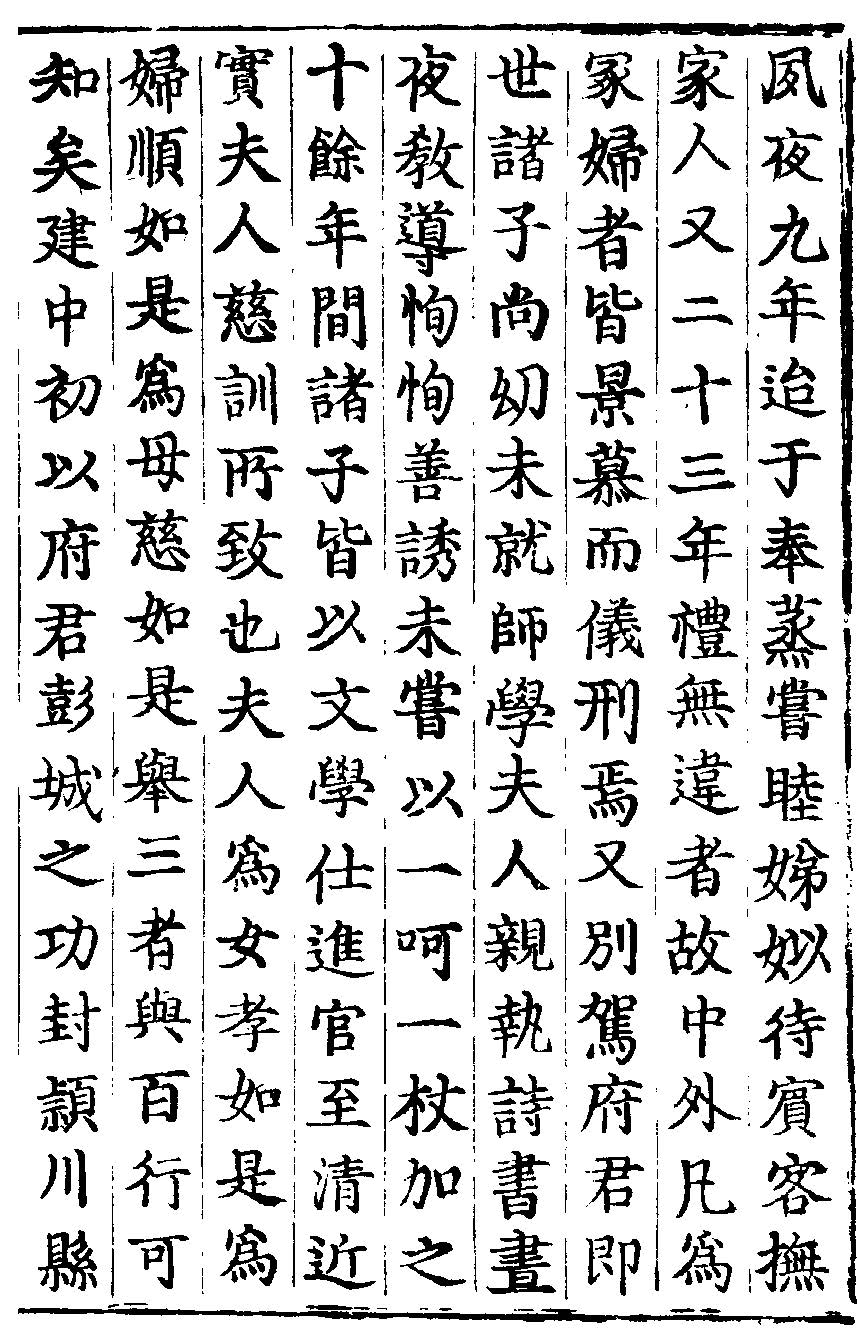 夙夜九年迨于奉蒸嘗睦娣姒待賓客撫
家人又二十三年禮無違者故中外凡為
冢婦者皆景慕而儀刑焉又別駕府君即
世諸子尚幼未就師學夫人親執詩書晝
夜教導恂恂善誘未嘗以一呵一杖加之
十餘年間諸子皆以文學仕進官至清近
實夫人慈訓所致也夫人為女孝如是為
婦順如是為母慈如是舉三者與百行可
知矣建中初以府君彭城之功封潁川縣